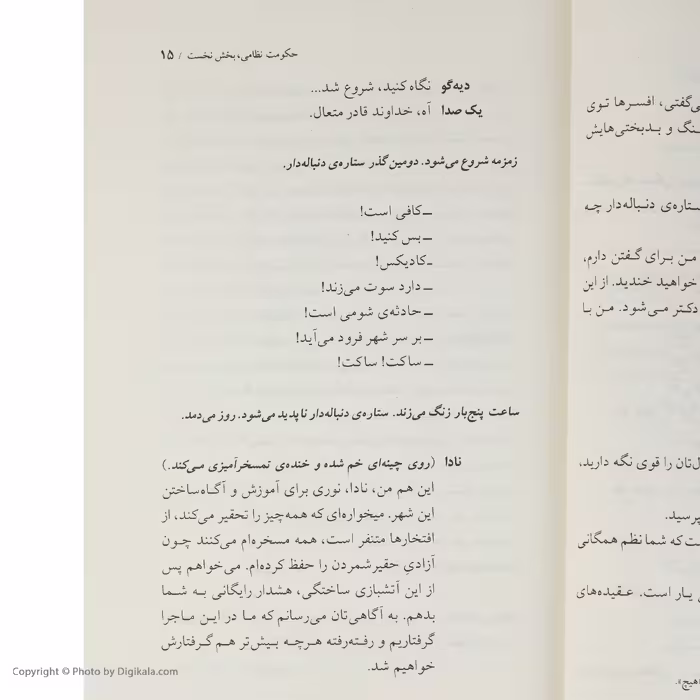 حکومت نظامی، بخش نخست / ۱۵
دیه‌گو نگاه کنید، شروع شد...
یک صدا آه، خداوند قادر متعال.
زمزمه شروع می‌شود. دومین گذر ستاره‌ی دنباله‌دار.
ـ کافی است!
ـ بس کنید!
ـ کادیکس!
ـ دارد سوت می‌زند!
ـ حادثه‌ی شومی است!
ـ بر سر شهر فرود می‌آید!
ـ ساکت! ساکت!
ساعت پنج‌بار زنگ می‌زند. ستاره‌ی دنباله‌دار ناپدید می‌شود. روز می‌دمد.
نادا (روی چینه‌ای خم شده و خنده‌ی تمسخرآمیزی می‌کند.)
این هم من، نادا، نوری برای آموزش و آگاه‌ساختن
این شهر. میخواره‌ای که همه‌چیز را تحقیر می‌کند، از
افتخارها متنفر است، همه مسخره‌ام می‌کنند چون
آزادیِ حقیرشمردن را حفظ کرده‌ام. می‌خواهم پس
از این آتشبازی ساختگی، هشدار رایگانی به شما
بدهم. به آگاهی‌تان می‌رسانم که ما در این ماجرا
گرفتاریم و رفته‌رفته هرچه بیش‌تر هم گرفتارش
خواهیم شد.
می‌گفتی، افسرها توی
و بدبختی‌هایش
ستاره‌ی دنباله‌دار چه
من برای گفتن دارم،
خواهید خندید. از این
دکتر می‌شود. من با
را قوی نگه دارید،
که شما نظم همگانی
یار است. عقیده‌های
Copyright © Photo by Digikala.com